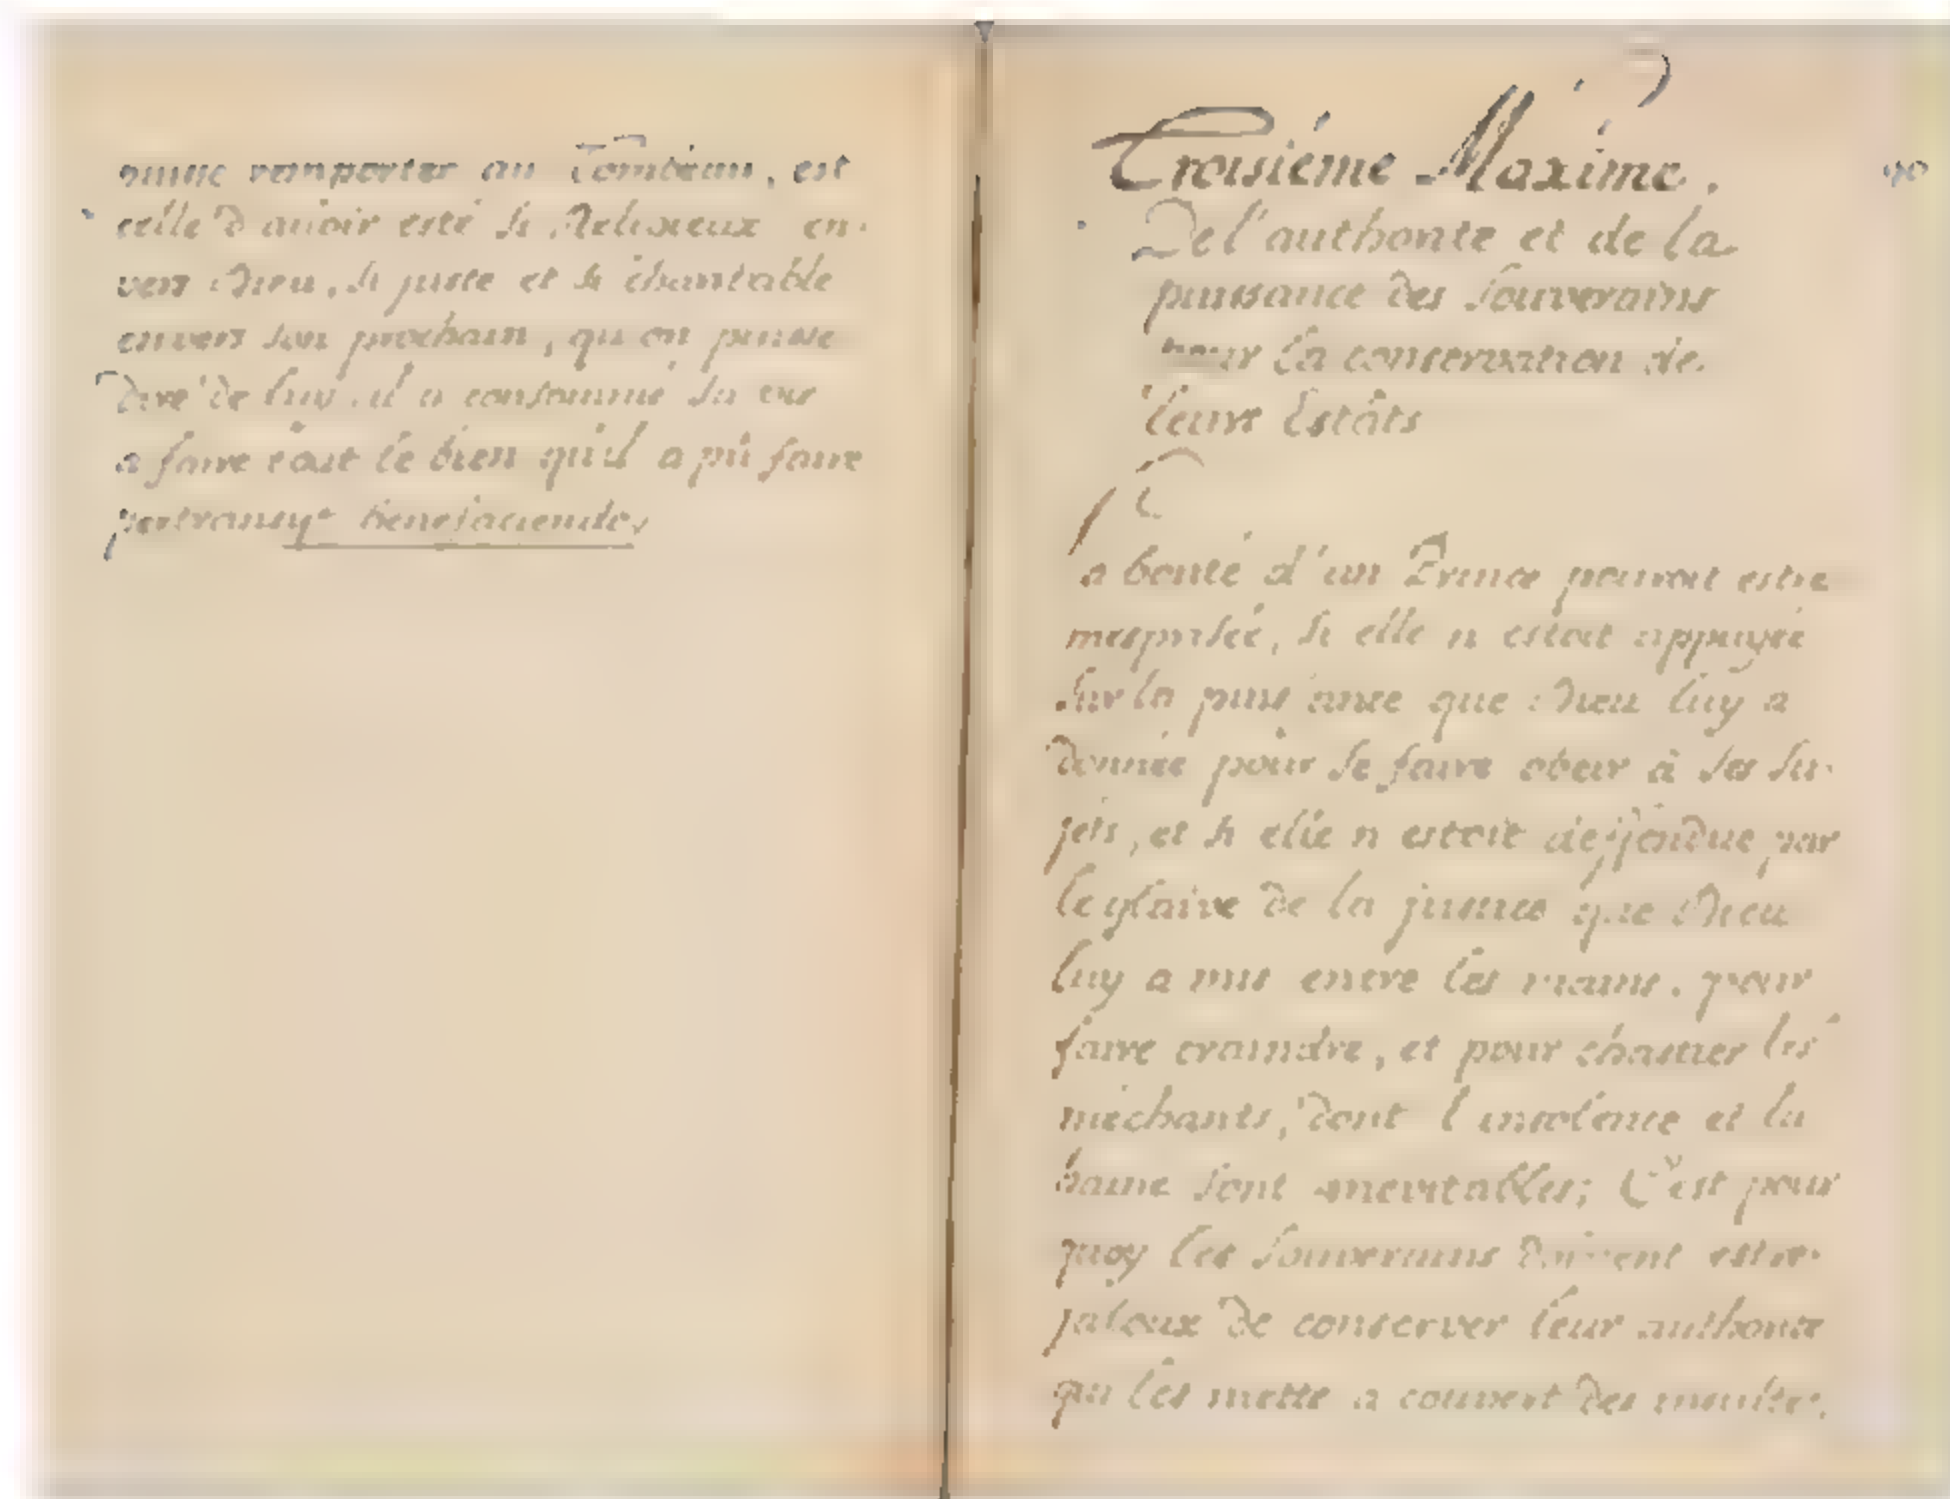 remporter au Tombeau, est
celle d'avoir esté si Religieux en-
vers Dieu, si juste et si charitable
envers son prochain, qu'on puisse
dire de luy, il a consommé sa vie
a faire tout le bien qu'il a pû faire
pertransiit benefaciendo,
Troisiéme Maxime.
90
De l'authorité et de la
puissance des Souverains
pour la conservation de
leurs Estâts
La bonté d'un Prince pouroit estre
mesprisée, si elle n'estoit appuyée
sur la puissance que Dieu luy a
donnée pour se faire obeir à ses su-
jets, et si elle n'estoit deffendue par
le glaive de la justice que Dieu
luy a mis entre les mains. pour
faire craindre, et pour chastier les
méchants, dont l'insolence et la
haine sont inevitables; C'est pour
quoy les Souverains doivent estre
jaloux de conserver leur authorité
qui les mette a couvert des